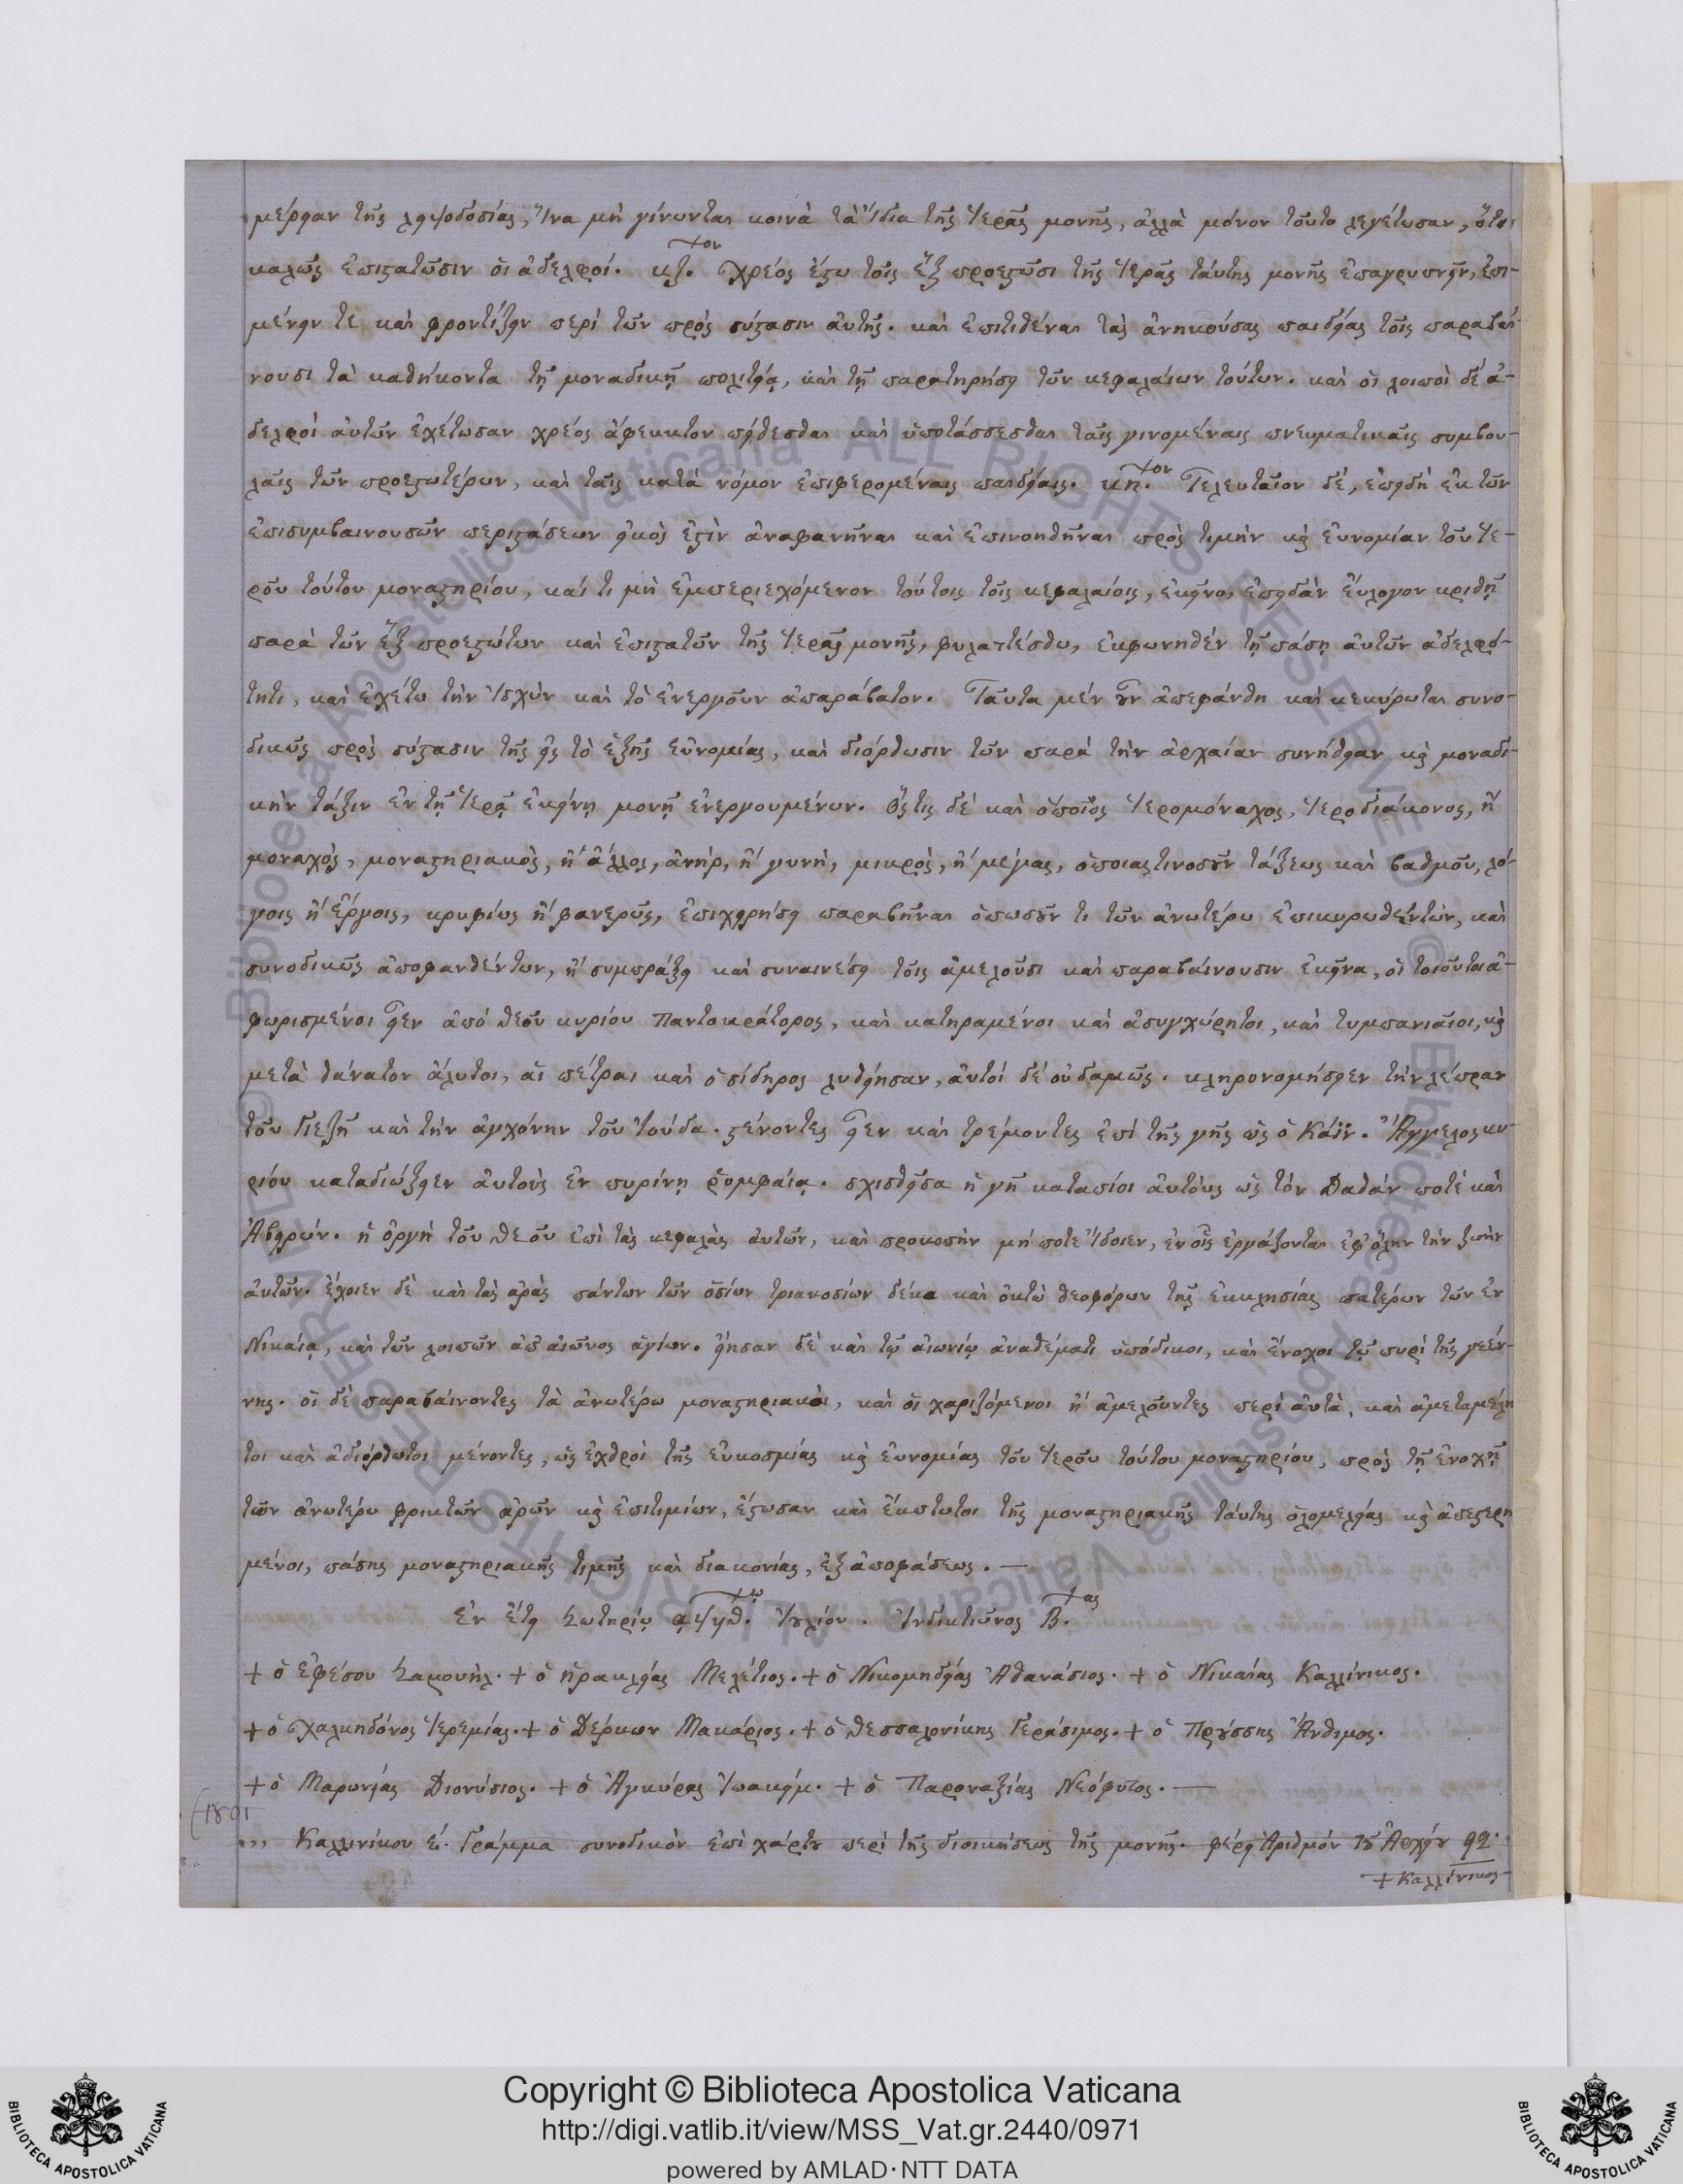 μέρειαν τῆς λειψοδοσίας, ἵνα μὴ γίνωνται κοινὰ τὰ ἴδια τῆς ἱερᾶς μονῆς, ἀλλὰ μόνον τοῦτο λεγέτωσαν, ὅτι
καλῶς ἐπιστατῶσιν οἱ ἀδελφοί. κζ.τον Χρέος ἔστω τοῖς ἓξ προεστῶσι τῆς ἱερᾶς ταύτης μονῆς ἐπαγρυπνεῖν, ἐπι-
μένειν τε καὶ φροντίζειν περὶ τῶν πρὸς σύστασιν αὐτῆς. καὶ ἐπιτιθέναι τὰς ἀνηκούσας παιδείας τοῖς παραβαί-
νουσι τὰ καθήκοντα τῇ μοναδικῇ πολιτείᾳ, καὶ τῇ παρατηρήσει τῶν κεφαλαίων τούτων. καὶ οἱ λοιποὶ δὲ ἀ-
δελφοὶ αὐτῶν ἐχέτωσαν χρέος ἄφευκτον πείθεσθαι καὶ ὑποτάσσεσθαι ταῖς γινομέναις πνευματικαῖς συμβου-
λαῖς τῶν προεστωτέρων, καὶ ταῖς κατὰ νόμον ἐπιφερομέναις παιδείαις. κη.τον Τελευταῖον δέ, ἐπειδὴ ἐκ τῶν
ἐπισυμβαινουσῶν περιστάσεων εἰκὸς ἐστὶν ἀναφανῆναι καὶ ἐπινοηθῆναι πρὸς τιμὴν καὶ εὐνομίαν τοῦ ἱε-
ροῦ τούτου μοναστηρίου, καί τι μὴ ἐμπεριεχόμενον τούτοις τοῖς κεφαλαίοις, ἐκεῖνο, ἐπειδὰν εὔλογον κριθῇ
παρὰ τῶν ἓξ προεστώτων καὶ ἐπιστατῶν τῆς ἱερᾶς μονῆς, φυλαττέσθω, ἐκφωνηθὲν τῇ πάσῃ αὐτῶν ἀδελφό-
τητι, καὶ ἐχέτω τὴν ἰσχὺν καὶ τὸ ἐνεργοῦν ἀπαράβατον. Ταῦτα μὲν οὖν ἀπεφάνθη καὶ κεκύρωται συνο-
δικῶς πρὸς σύστασιν τῆς εἰς τὸ ἑξῆς εὐνομίας, καὶ διόρθωσιν τῶν παρὰ τὴν ἀρχαίαν συνήθειαν καὶ μοναδι-
κὴν τάξιν ἐν τῇ ἱερᾷ ἐκείνῃ μονῇ ἐνεργουμένων. Ὅστις δὲ καὶ ὁποῖος ἱερομόναχος, ἱεροδιάκονος, ἢ
μοναχὸς, μοναστηριακὸς, ἢ ἄλλος, ἀνήρ, ἢ γυνὴ, μικρὸς, ἢ μέγας, ὁποιαστινοσοῦν τάξεως καὶ βαθμοῦ, λό-
γοις ἢ ἔργοις, κρυφίως ἢ φανερῶς, ἐπιχειρήσῃ παραβῆναι ὁπωσοῦν τι τῶν ἀνωτέρω ἐπικυρωθέντων, καὶ
συνοδικῶς ἀποφανθέντων, ἢ συμπράξῃ καὶ συναινέσῃ τοῖς ἀμελοῦσι καὶ παραβαίνουσιν ἐκεῖνα, οἱ τοιοῦτοι ἀ-
φωρισμένοι εἶεν ἀπὸ θεοῦ κυρίου Παντοκράτορος, καὶ κατηραμένοι καὶ ἀσυγχώρητοι, καὶ τυμπανιαῖοι, καὶ
μετὰ θάνατον ἄλυτοι, αἱ πέτραι καὶ ὁ σίδηρος λυθείησαν, αὐτοὶ δὲ οὐδαμῶς. κληρονομήσειεν τὴν λέπραν
τοῦ Γιεζῆ καὶ τὴν ἀγχόνην τοῦ Ἰούδα. στένοντες εἶεν καὶ τρέμοντες ἐπὶ τῆς γῆς ὡς ὁ Κάϊν. Ἄγγελος κυ-
ρίου καταδιώξειεν αὐτοὺς ἐν πυρίνῃ ῥομφαίᾳ. σχισθεῖσα ἡ γῆ καταπίοι αὐτοὺς ὡς τὸν Δαθάν ποτε καὶ
Ἀβειρών. ἡ ὀργὴ τοῦ θεοῦ ἐπὶ τὰς κεφαλὰς αὐτῶν, καὶ προκοπὴν μή ποτε ἴδοιεν, ἐν οἷς ἐργάζονται ἐφ' ὅλην τὴν ζωὴν
αὐτῶν. ἔχοιεν δὲ καὶ τὰς ἀρὰς πάντων τῶν ὁσίων τριακοσίων δέκα καὶ ὀκτὼ θεοφόρων τῆς ἐκκλησίας πατέρων τῶν ἐν
Νικαίᾳ, καὶ τῶν λοιπῶν ἀπ' αἰῶνος ἁγίων. εἴησαν δὲ καὶ τῷ αἰωνίῳ ἀναθέματι ὑπόδικοι, καὶ ἔνοχοι τῷ πυρὶ τῆς γεέν-
νης. οἱ δὲ παραβαίνοντες τὰ ἀνωτέρω μοναστηριακοὶ, καὶ οἱ χαριζόμενοι ἢ ἀμελοῦντες περὶ αὐτὰ, καὶ ἀμεταμέλη
τοι καὶ ἀδιόρθωτοι μένοντες, ὡς ἐχθροὶ τῆς εὐκοσμίας καὶ εὐνομίας τοῦ ἱεροῦ τούτου μοναστηρίου, πρὸς τῇ ἐνοχῇ
τῶν ἀνωτέρω φρικτῶν ἀρῶν καὶ ἐπιτιμίων, ἔστωσαν καὶ ἔκπτωτοι τῆς μοναστηριακῆς ταύτης ὁλομελείας καὶ ἀπεστερη
μένοι, πάσης μοναστηριακῆς τιμῆς καὶ διακονίας, ἐξ ἀποφάσεως. —
Ἐν ἔτει Σωτηρίῳ ͵αψϟθ.ῳ Ἰουλίου. Ἰνδικτιῶνος Β.ας
+ ὁ Ἐφέσου Σαμουήλ. + ὁ Ἡρακλείας Μελέτιος. + ὁ Νικομηδείας Ἀθανάσιος. + ὁ Νικαίας Καλλίνικος.
+ ὁ Χαλκηδόνος Ἱερεμίας. + ὁ Δέρκων Μακάριος. + ὁ Θεσσαλονίκης Γεράσιμος. + ὁ Προύσσης Ἄνθιμος.
+ ὁ Μαρωνείας Διονύσιος. + ὁ Ἀγκύρας Ἰωακείμ. + ὁ Παροναξίας Νεόφυτος. —
(1801
,,, Καλλινίκου έ. Γράμμα συνοδικὸν ἐπὶ χάρτου περὶ τῆς διοικήσεως τῆς μονῆς. φέρει Ἀριθμόν τοῦ Ἀρχείου 92.
+ Καλλίνικος
Copyright © Biblioteca Apostolica Vaticana
http://digi.vatlib.it/view/MSS_Vat.gr.2440/0971
powered by AMLAD·NTT DATA
BIBLIOTECA APOSTOLICA VATICANA
BIBLIOTECA APOSTOLICA VATICANA